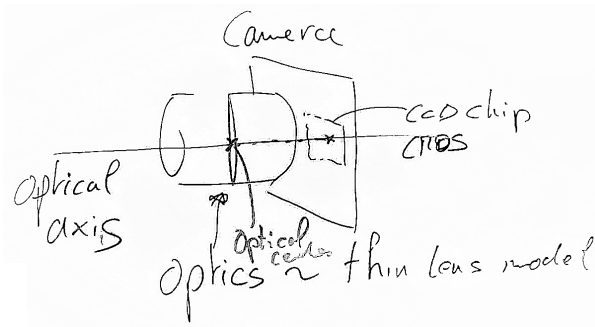 Camera
CCD chip
CMOS
Optical
axis
Optical
center
Optics ~ thin lens model